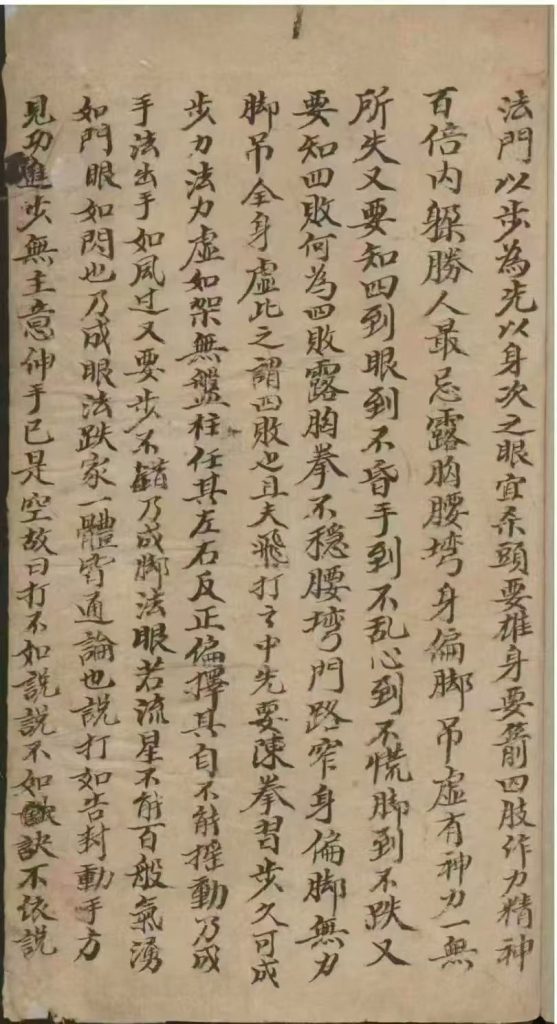 法門以步為先以身次之眼宜杀頭要雄身要箭四肢作力精神
百倍内躱勝人最忌露胸腰塆身偏脚吊虛有神力一無
所失又要知四到眼到不昏手到不乱心到不慌脚到不跌又
要知四敗何為四敗露胸拳不穩腰塆門路窄身偏脚無力
脚吊全身虛此之謂四敗也且夫飛打之中先要陳拳習步久可成
步力法力虛如架無盤柱任其左右反正偏擇其自不能摇動乃成
手法出手如風过又要步不錯乃成脚法眼若流星不能百般氣湧
如門眼如閃也乃成眼法跌家一體皆通論也説打如告封動手方
見功進步無主意伸手已是空故曰打不如説説不如訣訣不依説